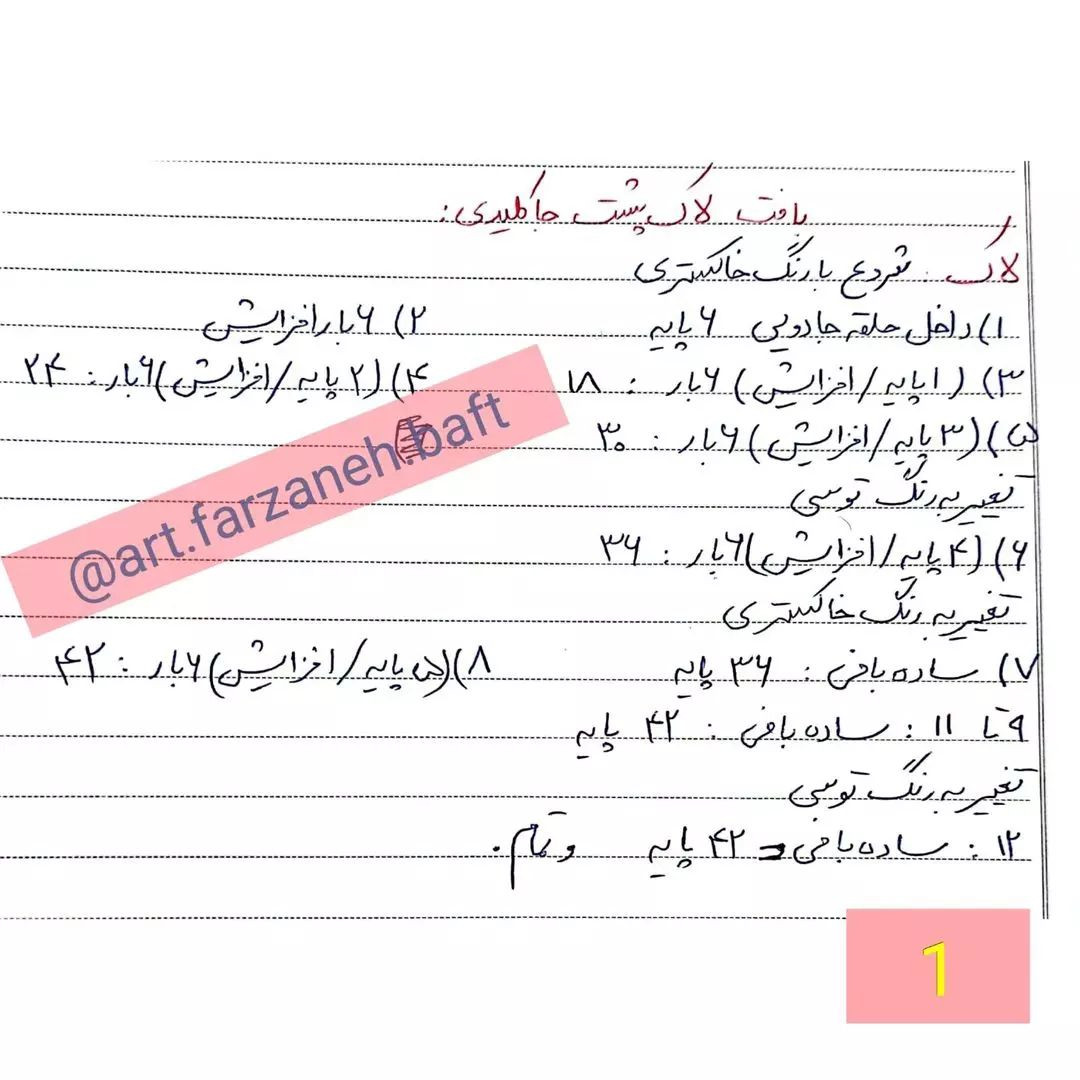 بافت لاک پشت جا کلیدی:
لاک: شروع با رنگ خاکستری
۱) داخل حلقه جادویی ۶ پایه ۲) ۶ بار افزایش
۳) (۱ پایه / افزایش) ۶ بار : ۱۸ ۴) (۲ پایه / افزایش) ۶ بار : ۲۴
۵) (۳ پایه / افزایش) ۶ بار : ۳۰
تغییر به رنگ توسی
۶) (۴ پایه / افزایش) ۶ بار : ۳۶
تغییر به رنگ خاکستری
۷) ساده بافی : ۳۶ پایه ۸) (۵ پایه / افزایش) ۶ بار : ۴۲
۹ تا ۱۱ : ساده بافی : ۴۲ پایه
تغییر به رنگ توسی
۱۲ : ساده بافی = ۴۲ پایه و تمام.
@art.farzaneh.baft
1